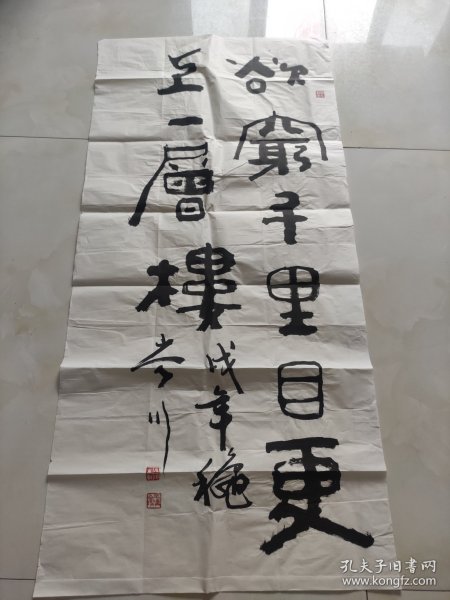 欲窮千里目更
上一層樓
戌年穐
孔夫子旧书网
www.kongfz.com